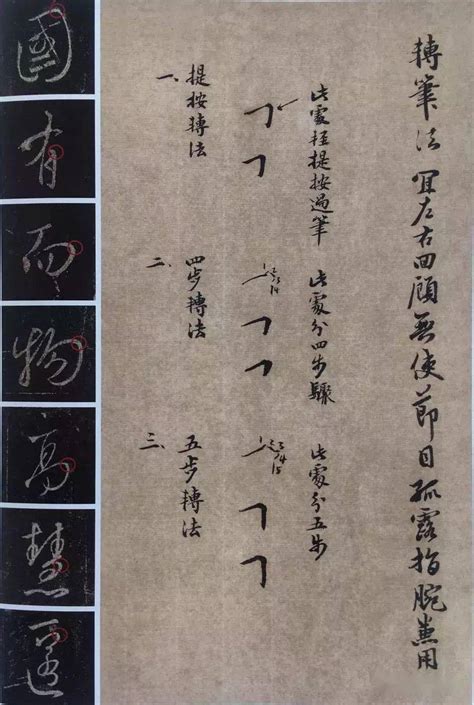 轉筆法 宜左右回顧無使節目孤露指腕兼用
此處經提按過筆
一、提按轉法
此處分四步驟
1 2 3 4
二、四步轉法
此處分五步
1 2 3 4 5
三、五步轉法
國
有
而
物
高
慧